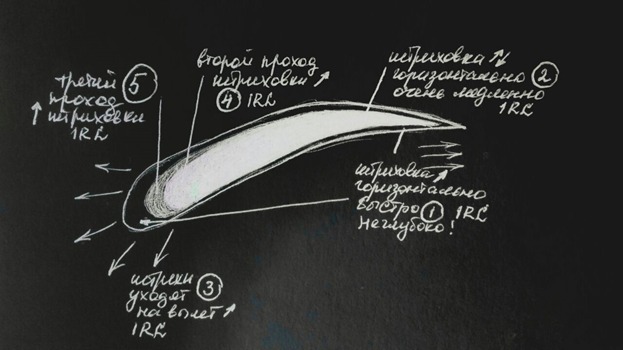 третий ⑤
↑ проход
штриховки
1RL
второй проход
штриховки ↗
④ 1RL
штриховка ↑↓
горизонтально ②
очень медленно
1RL
штриховка ↗
горизонтально
быстро ① 1RL
неглубоко!
штрихи ③
уходят
на вылет ↑
1RL